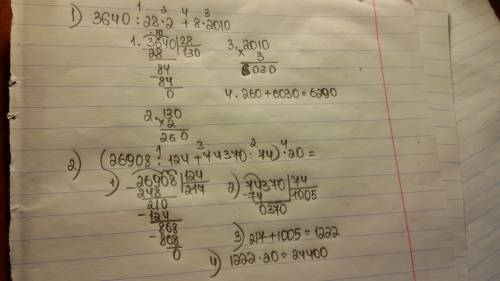 1) 3640 : 28 · 2 + 8 · 2010
1 2 4 3
1. 3640 | 28
28 130
84
84
0
3. 2010
× 3
6030
4. 260 + 6030 = 6290
2. 130
× 2
260
2) (26908 : 124 + 74370 : 74) · 20 =
1 3 2 4
1) 26908 | 124
- 248 217
210
- 124
868
- 868
0
2) 74370 | 74
- 74 1005
0370
3) 217 + 1005 = 1222
4) 1222 · 20 = 24400